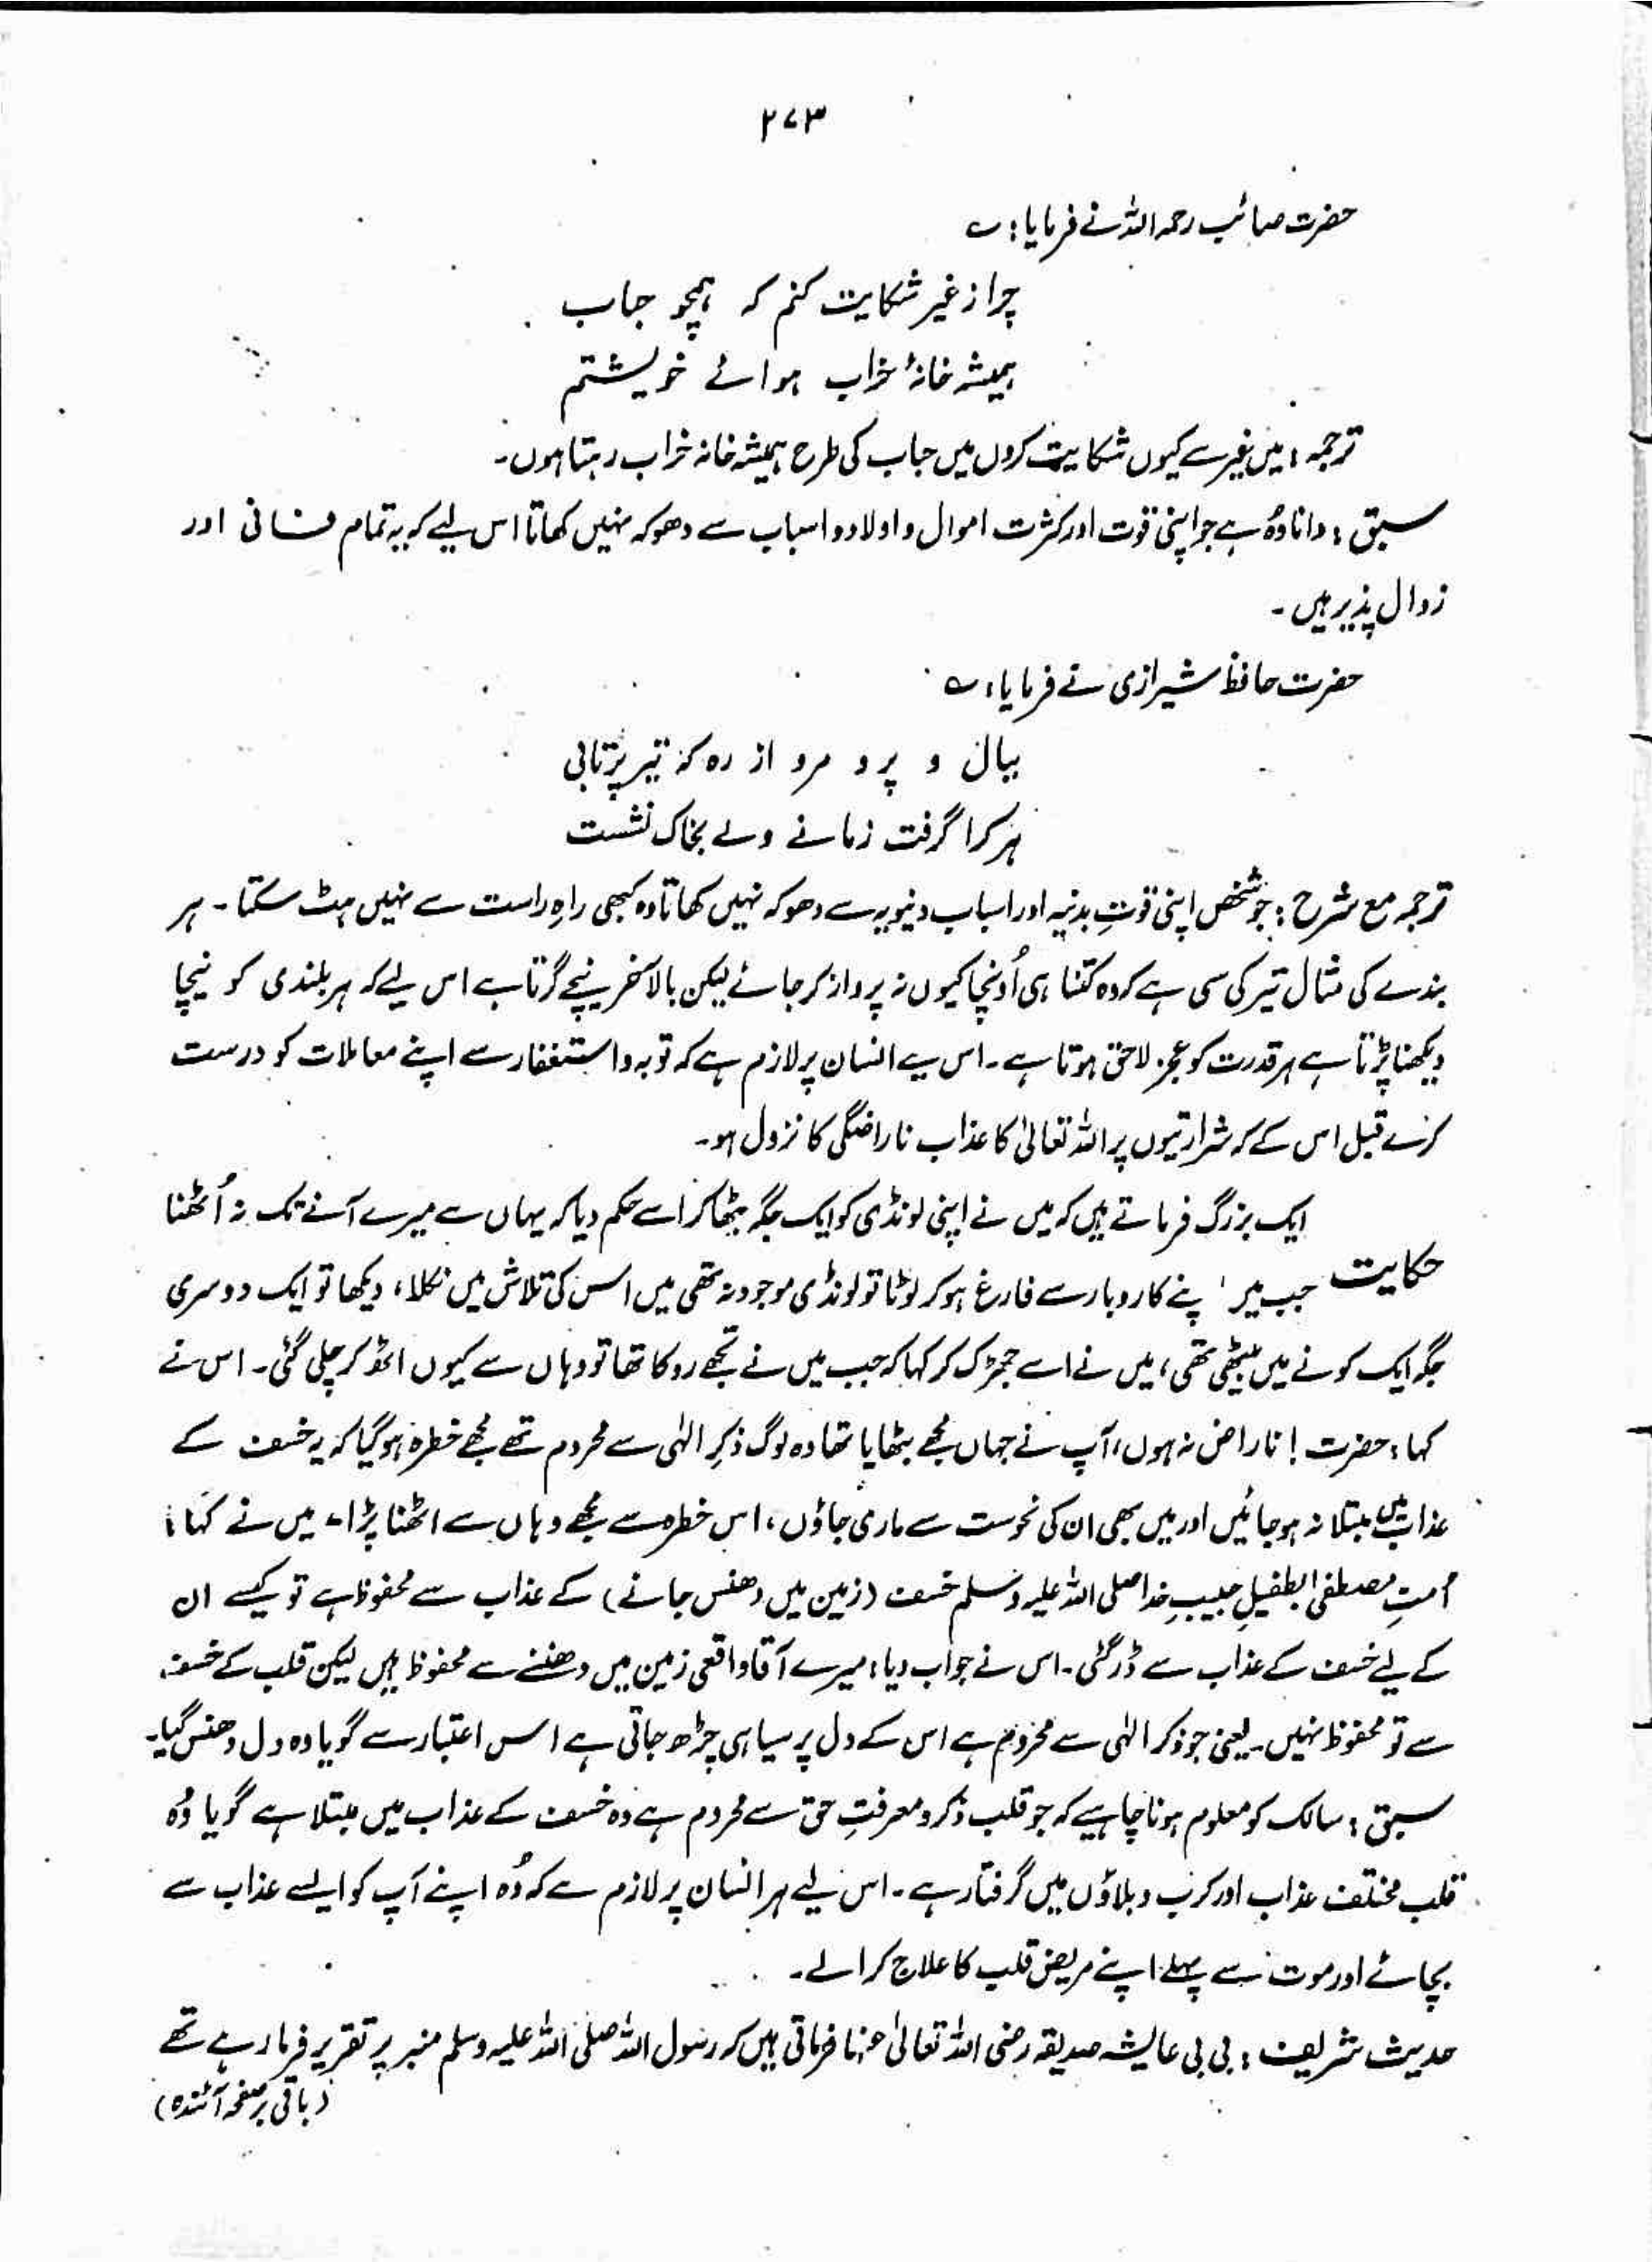 ۲۷۳
حضرت صائب رحمہ اللہ نے فرمایا : ؎
چرا ز غیر شکایت کنم کہ ہمچو حباب
ہمیشہ خانۂ خراب ہوائے خویشتم
ترجمہ : میں غیر سے کیوں شکایت کروں میں حباب کی طرح ہمیشہ خانہ خراب رہتا ہوں۔
سبق : دانا وہ ہے جو اپنی قوت اور کثرت اموال و اولاد و اسباب سے دھوکہ نہیں کھاتا اس لیے کہ یہ تمام فانی اور
زوال پذیر ہیں ۔
حضرت حافظ شیرازی نے فرمایا : ؎
ببال و پر و مرو از رہ کہ تیر پرتابی
ہر کرا گرفت زمانے ولے بخاک نشست
ترجمہ مع شرح : جو شخص اپنی قوتِ بدنیہ اور اسباب دنیویہ سے دھوکہ نہیں کھاتا وہ کبھی راہِ راست سے نہیں ہٹ سکتا ۔ ہر
بندے کی مثال تیر کی سی ہے کہ وہ کتنا ہی اُونچا کیوں نہ پرواز کر جائے لیکن بالآخر نیچے گرتا ہے اس لیے کہ ہر بلندی کو نیچا
دیکھنا پڑتا ہے ہر قدرت کو عجز لاحق ہوتا ہے ۔ اس لیے انسان پر لازم ہے کہ توبہ و استغفار سے اپنے معاملات کو درست
کرے قبل اس کے کہ شرارتیوں پر اللہ تعالیٰ کا عذاب ناراضگی کا نزول ہو۔
ایک بزرگ فرماتے ہیں کہ میں نے اپنی لونڈی کو ایک جگہ بٹھا کر اسے حکم دیا کہ یہاں سے میرے آنے تک نہ اُٹھنا
حکایت جب میں اپنے کاروبار سے فارغ ہو کر لوٹا تو لونڈی موجود نہ تھی میں اس کی تلاش میں نکلا، دیکھا تو ایک دوسری
جگہ ایک کونے میں بیٹھی تھی، میں نے اسے جھڑک کر کہا کہ جب میں نے تجھے روکا تھا تو وہاں سے کیوں اٹھ کر چلی گئی۔ اس نے
کہا : حضرت ! ناراض نہ ہوں، آپ نے جہاں مجھے بٹھایا تھا وہ لوگ ذکرِ الٰہی سے محروم تھے مجھے خطرہ ہو گیا کہ یہ خسف کے
عذاب میں مبتلا نہ ہو جائیں اور میں بھی ان کی نحوست سے ماری جاؤں، اس خطرہ سے مجھے وہاں سے اٹھنا پڑا۔ میں نے کہا :
اُمتِ مصطفیٰ بطفیلِ حبیبِ خدا صلی اللہ علیہ وسلم خسف (زمین میں دھنس جانے) کے عذاب سے محفوظ ہے تو کیسے ان
کے لیے خسف کے عذاب سے ڈر گئی ۔ اس نے جواب دیا : میرے آقا واقعی زمین میں دھنسنے سے محفوظ ہیں لیکن قلب کے خسف
سے تو محفوظ نہیں ۔ یعنی جو ذکر الٰہی سے محروم ہے اس کے دل پر سیاہی چڑھ جاتی ہے اس اعتبار سے گویا وہ دل دھنس گیا۔
سبق : سالک کو معلوم ہونا چاہیے کہ جو قلب ذکر و معرفتِ حق سے محروم ہے وہ خسف کے عذاب میں مبتلا ہے گویا وُہ
قلب مختلف عذاب اور کرب و بلاؤں میں گرفتار ہے ۔ اس لیے ہر انسان پر لازم ہے کہ وُہ اپنے آپ کو ایسے عذاب سے
بچائے اور موت سے پہلے اپنے مریض قلب کا علاج کرا لے ۔
حدیث شریف : بی بی عائشہ صدیقہ رضی اللہ تعالیٰ عنہا فرماتی ہیں کہ رسول اللہ صلی اللہ علیہ وسلم منبر پر تقریر فرما رہے تھے
(باقی بر صفحہ آئندہ)